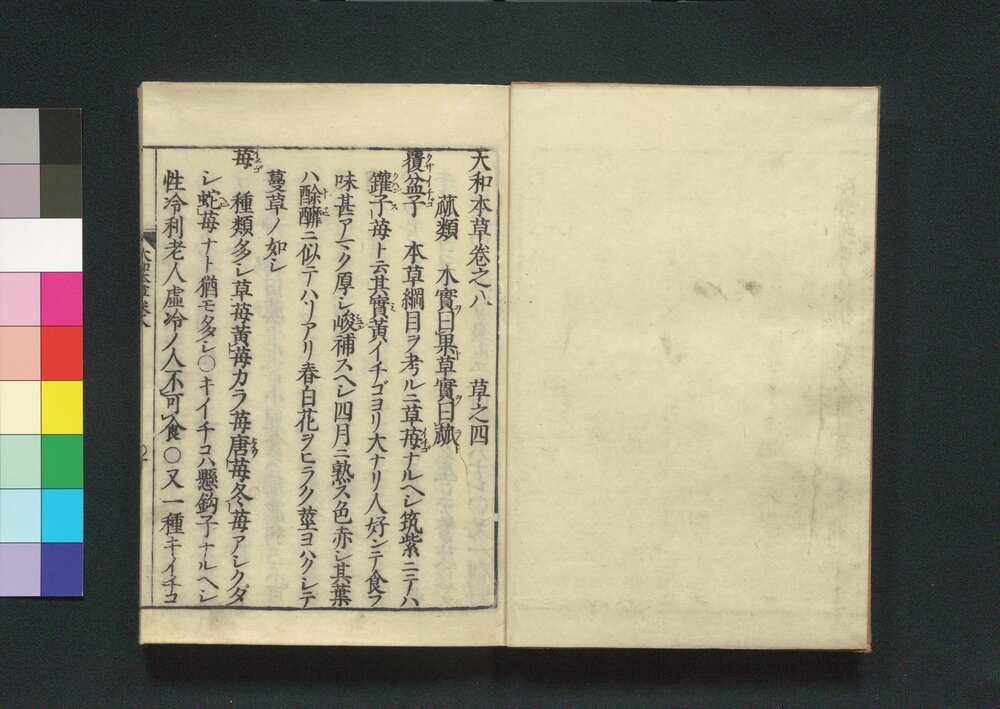 大和本草卷之八　草之四
蓏類　木實曰果草實曰蓏
覆盆子　本草綱目ヲ考ルニ草苺ナルヘシ筑紫ニテハ
鑵子苺ト云其實黄イチゴヨリ大ナリ人好ンテ食フ
味甚アマク厚シ峻補スヘシ四月ニ熟ス色赤シ其葉
ハ酴醿ニ似テハリアリ春白花ヲヒラク莖ヨハクシテ
蔓草ノ如シ
苺　種類多シ草苺黄苺カラ苺唐苺冬苺アシクダ
シ蛇苺ナト猶モ多シ○キイチコハ懸鈎子ナルヘシ
性冷利老人虚冷ノ人不可食○又一種キイチコ